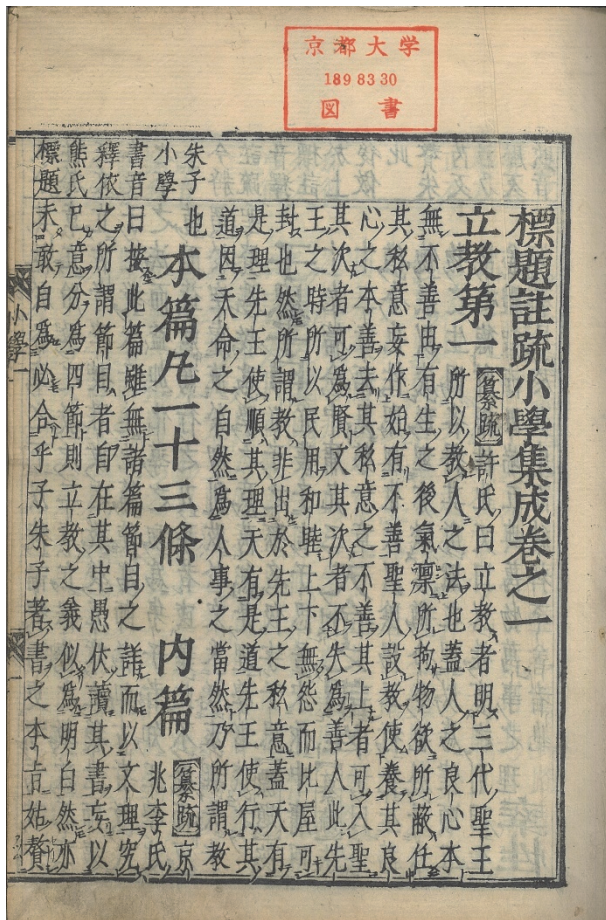 京都大学
1898330
図書
標題註疏小學集成卷之一
立教第一
纂疏
許氏曰立教者明三代聖王
所以教人之法也蓋人之良心本
無不善由有生之後氣稟所拘物欲所蔽任
其私意妄作始有不善聖人設教使養其良
心之本善去其私意之不善其上者可入聖
其次者可爲賢又其次者不失爲善人此先
王之時所以民用和睦上下無怨而比屋可
封也然所謂教非出於先王之私意蓋天有
是理先王使順其理天有是道先王使行其
道因天命之自然爲人事之當然乃所謂教
也 本篇凡一十三條 内篇 纂疏 京
兆李氏
曰按此篇雖無諸篇節目之詳而以文理究
之所謂節目者自在其中愚伏讀其書妄以
己意分爲四節則立教之義似爲明白然亦
未敢自爲必合乎子朱子著書之本旨姑贅
朱子
小學
書音
釋依
熊氏
標題
小學一